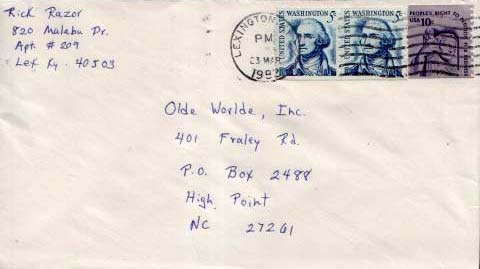 Rick Razor
820 Malabu Dr.
Apt. # 209
Lex Ky. 40503
LEXINGTON
PM
23 MAR
UNITED STATES
WASHINGTON 5c
UNITED STATES
WASHINGTON 5c
PEOPLE'S RIGHT TO
USA 10c
Olde Worlde, Inc.
401 Fraley Rd.
P.O. Box 2488
High Point
NC 27261